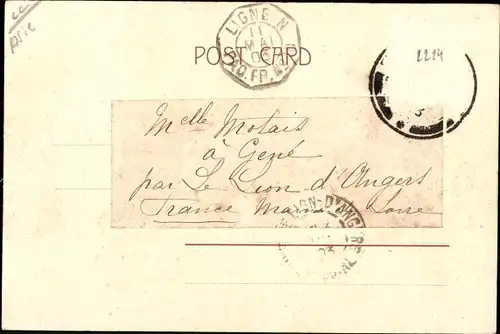 LIGNE N
11
MAI
POST CARD
2214
Melle Motais
à Gené
par Le Lion d'Angers
France Maine Loire